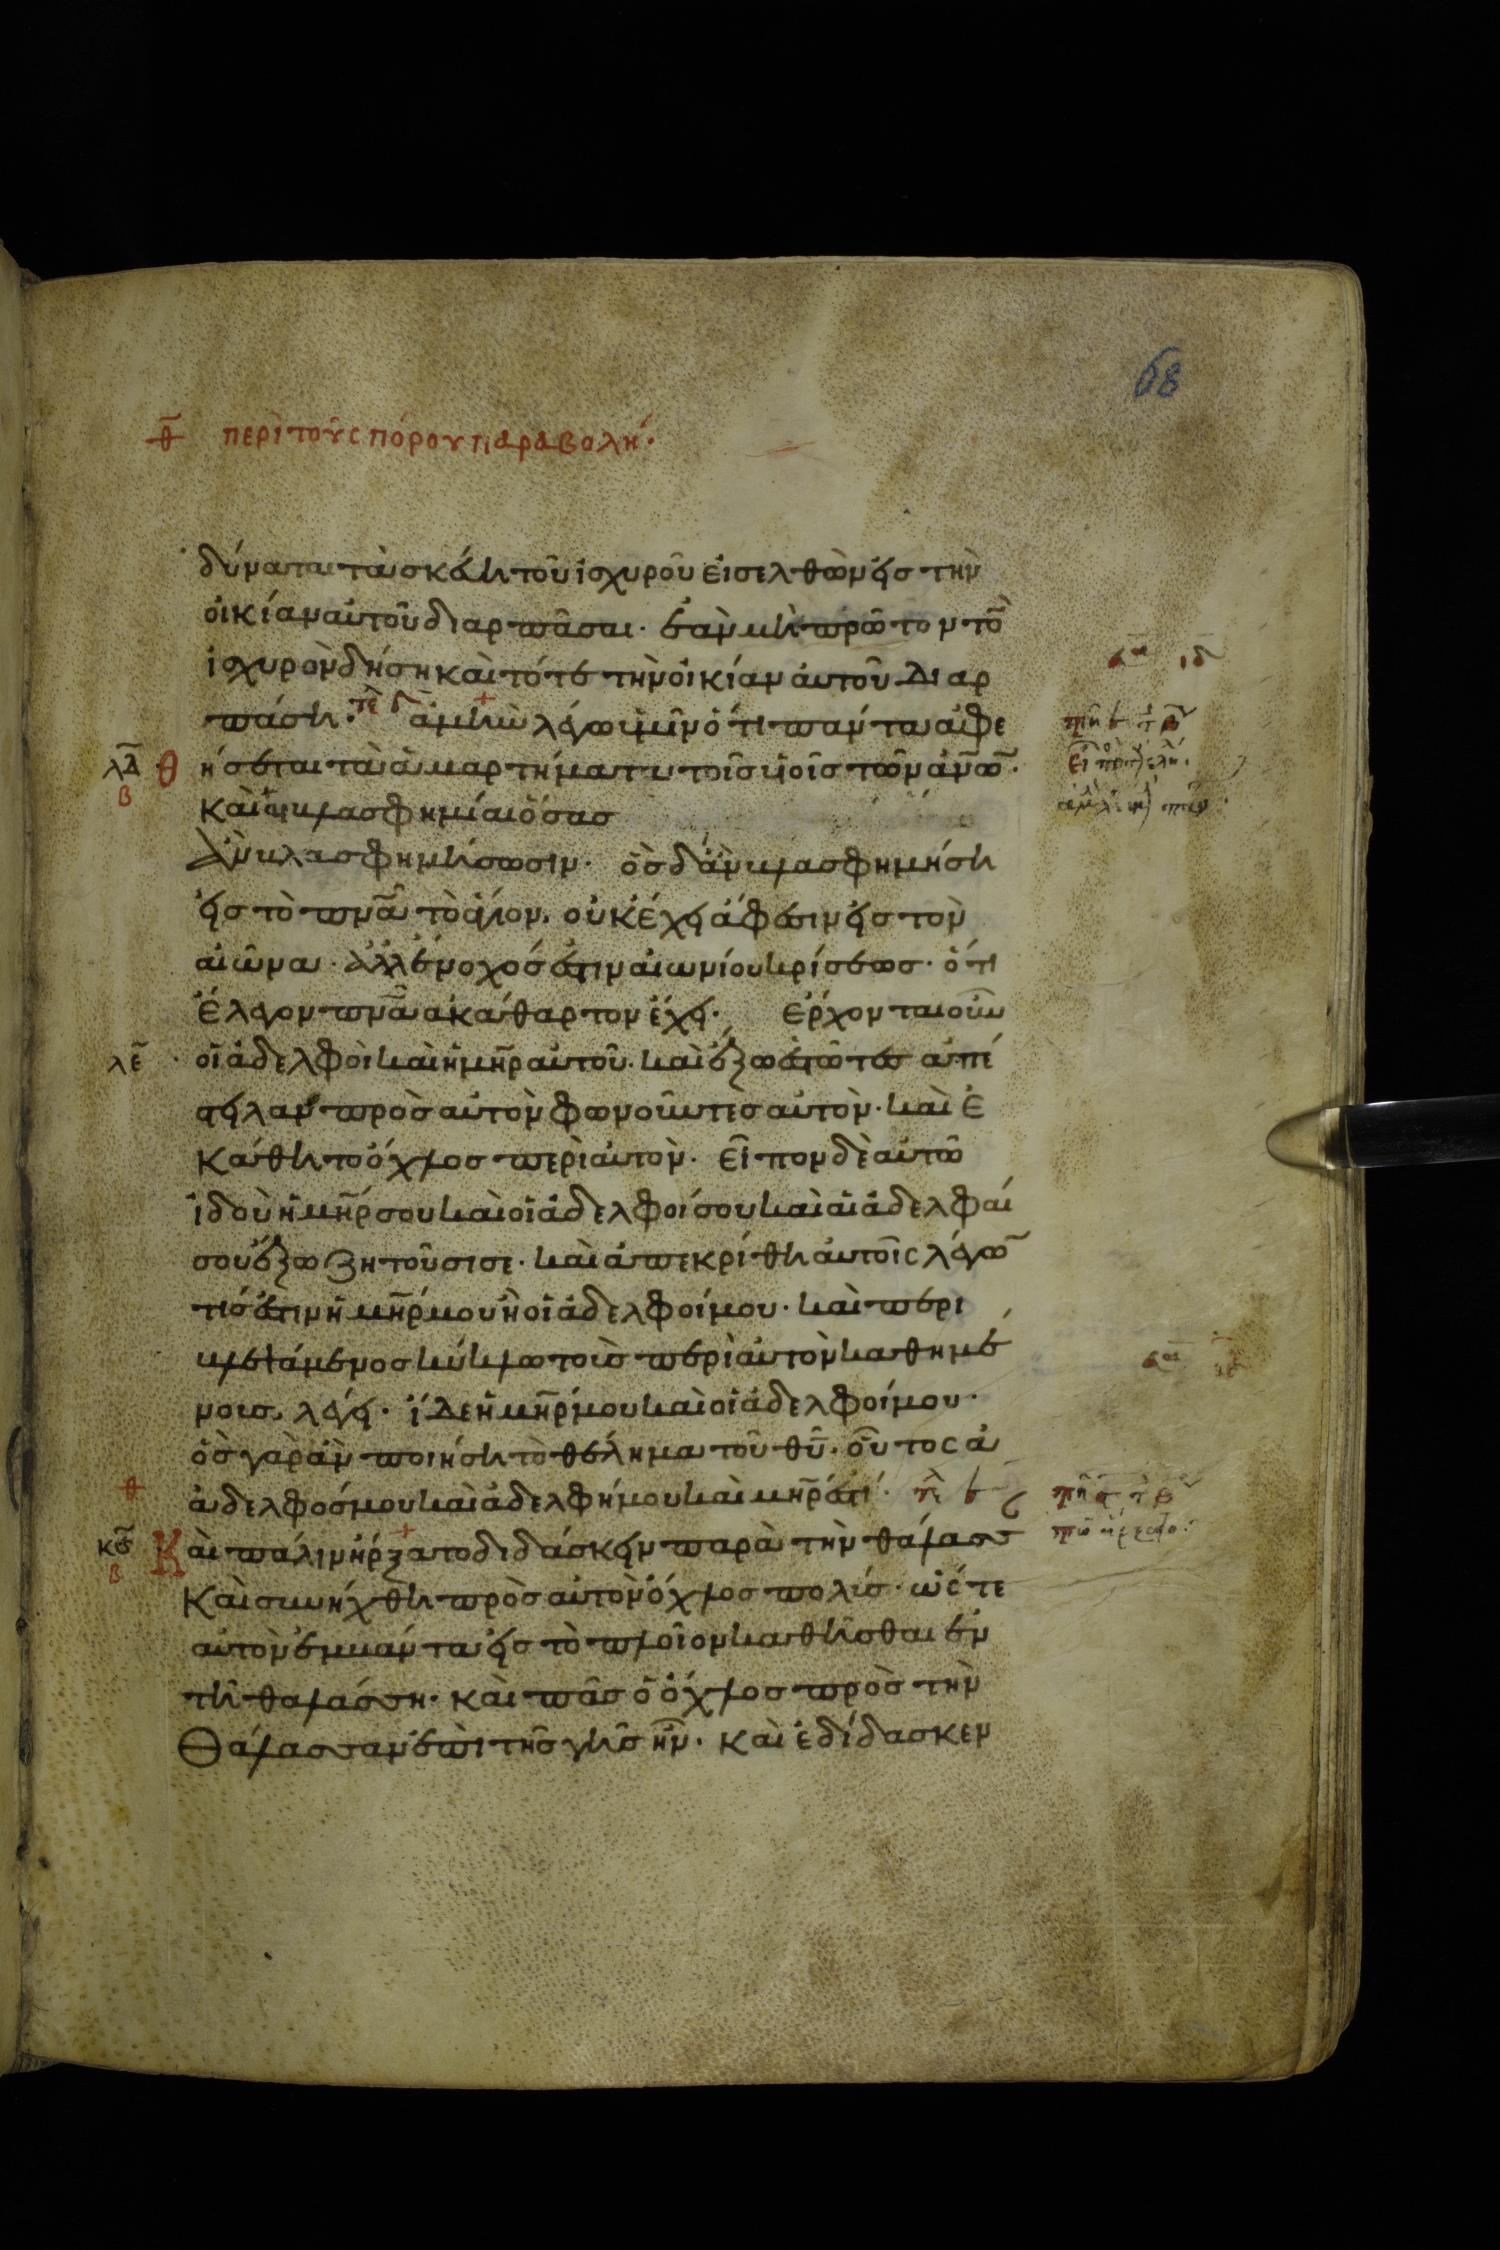 68
θ̄ περὶ τοῦ σπόρου παραβολή·
δύναται τὰ σκεύη τοῦ ἰσχυροῦ εἰσελθὼν εἰς τὴν
οἰκίαν αὐτοῦ διαρπᾶσαι· ἐὰν μὴ πρῶτον τὸ̄
ἰσχυρὸν δήση καὶ τότε τὴν οἰκίαν αὐτοῦ διαρ
πάση· ἀμὴν λέγω ὑμῖν ὅτι πάντα ἀφε
λδ θήσεται τὰ ἁμαρτήματα τοῖς υἱοῖς τῶν ἀν̄ω̄·
β καὶ αἱ βλασφημίαι ὅσας
ἂν βλασφημήσωσιν· ὃς δ' ἂν βλασφημήση
εἰς τὸ πν̄ᾱ τὸ ἅγιον, οὐκ ἔχει ἄφεσιν εἰς τὸν
αἰῶνα· ἀλλ' ἔνοχός ἐστιν αἰωνίου κρίσεως· ὅτι
ἔλεγον πν̄ᾱ ἀκάθαρτον ἔχει· ἔρχονται οὖν
λε οἱ ἀδελφοὶ καὶ ἡ μη̄ρ αὐτοῦ· καὶ ἔξω ἑστῶτες ἀπέ
στειλαν πρὸς αὐτὸν φωνοῦντες αὐτὸν· καὶ ἐ
κάθητο ὄχλος περὶ αὐτὸν· εἶπον δὲ αὐτῶ
ἰδοὺ ἡ μη̄ρ σου καὶ οἱ ἀδελφοί σου καὶ αἱ ἀδελφαί
σου ἔξω ζητοῦσι σε· καὶ ἀπεκρίθη αὐτοῖς λέγω̄
τίς ἐστιν ἡ μη̄ρ μου ἢ οἱ ἀδελφοί μου· καὶ περι
βλεψάμενος κύκλω τοὺς περὶ αὐτὸν καθημέ
νους, λέγει· ἴδε ἡ μη̄ρ μου καὶ οἱ ἀδελφοί μου·
ὃς γὰρ ἂν ποιήση τὸ θέλημα τοῦ θῡ· οὗτος ἀ
ἀδελφός μου καὶ ἀδελφή μου καὶ μη̄ρ ἐστί·
κς Καὶ πάλιν ἤρξατο διδάσκειν παρὰ τὴν θάλασσ
β καὶ συνήχθη πρὸς αὐτὸν ὄχλος πολύς· ὥστε
αὐτὸν ἐμβάντα εἰς τὸ πλοῖον καθῆσθαι ἐν
τῆ θαλάσση· καὶ πᾶς ὁ ὄχλος πρὸς τὴν
θάλασσαν ἐπὶ τῆς γῆς ἦν· καὶ ἐδίδασκεν